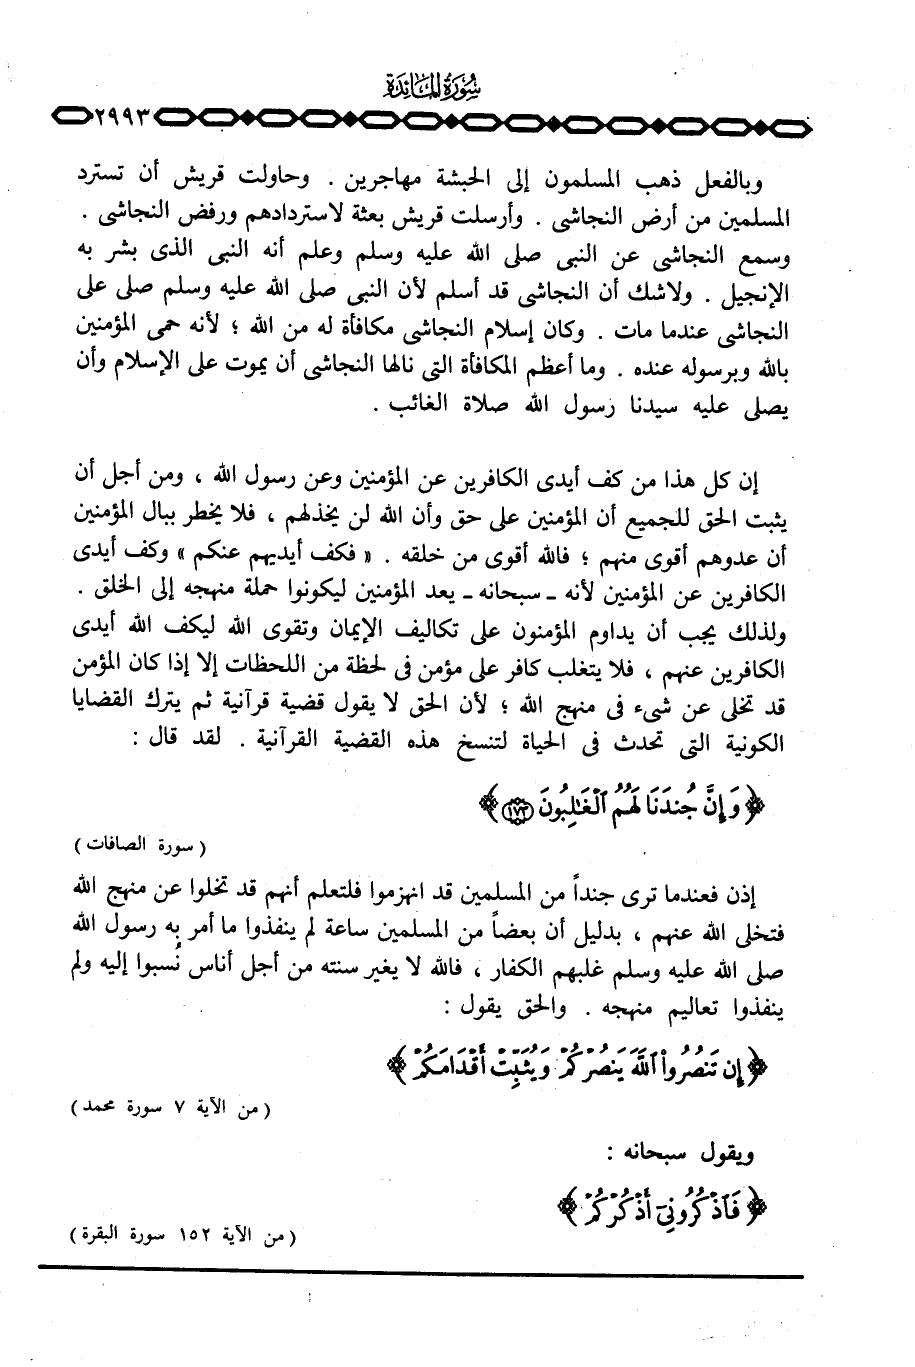 سُورَةُ المَائِدَة
٢٩٩٣
وبالفعل ذهب المسلمون إلى الحبشة مهاجرين . وحاولت قريش أن تسترد
المسلمين من أرض النجاشى . وأرسلت قريش بعثة لاستردادهم ورفض النجاشى .
وسمع النجاشى عن النبى صلى الله عليه وسلم وعلم أنه النبى الذى بشر به
الإنجيل . ولاشك أن النجاشى قد أسلم لأن النبى صلى الله عليه وسلم صلى على
النجاشى عندما مات . وكان إسلام النجاشى مكافأة له من الله ؛ لأنه حمى المؤمنين
بالله وبرسوله عنده . وما أعظم المكافأة التى نالها النجاشى أن يموت على الإسلام وأن
يصلى عليه سيدنا رسول الله صلاة الغائب .
إن كل هذا من كف أيدى الكافرين عن المؤمنين وعن رسول الله ، ومن أجل أن
يثبت الحق للجميع أن المؤمنين على حق وأن الله لن يخذلهم ، فلا يخطر ببال المؤمنين
أن عدوهم أقوى منهم ؛ فالله أقوى من خلقه . « فكف أيديهم عنكم » وكف أيدى
الكافرين عن المؤمنين لأنه ـ سبحانه ـ يعد المؤمنين ليكونوا حملة منهجه إلى الخلق .
ولذلك يجب أن يداوم المؤمنون على تكاليف الإيمان وتقوى الله ليكف الله أيدى
الكافرين عنهم ، فلا يتغلب كافر على مؤمن فى لحظة من اللحظات إلا إذا كان المؤمن
قد تخلى عن شىء فى منهج الله ؛ لأن الحق لا يقول قضية قرآنية ثم يترك القضايا
الكونية التى تحدث فى الحياة لتنسخ هذه القضية القرآنية . لقد قال :
﴿ وَإِنَّ جُندَنَا لَهُمُ ٱلْغَٰلِبُونَ ١٧٣ ﴾
( سورة الصافات )
إذن فعندما ترى جنداً من المسلمين قد انهزموا فلتعلم أنهم قد تخلوا عن منهج الله
فتخلى الله عنهم ، بدليل أن بعضاً من المسلمين ساعة لم ينفذوا ما أمر به رسول الله
صلى الله عليه وسلم غلبهم الكفار ، فالله لا يغير سنته من أجل أناس نُسبوا إليه ولم
ينفذوا تعاليم منهجه . والحق يقول :
﴿ إِن تَنصُرُوا۟ ٱللَّهَ يَنصُرْكُمْ وَيُثَبِّتْ أَقْدَامَكُمْ ﴾
( من الآية ٧ سورة محمد )
ويقول سبحانه :
﴿ فَٱذْكُرُونِىٓ أَذْكُرْكُمْ ﴾
( من الآية ١٥٢ سورة البقرة )